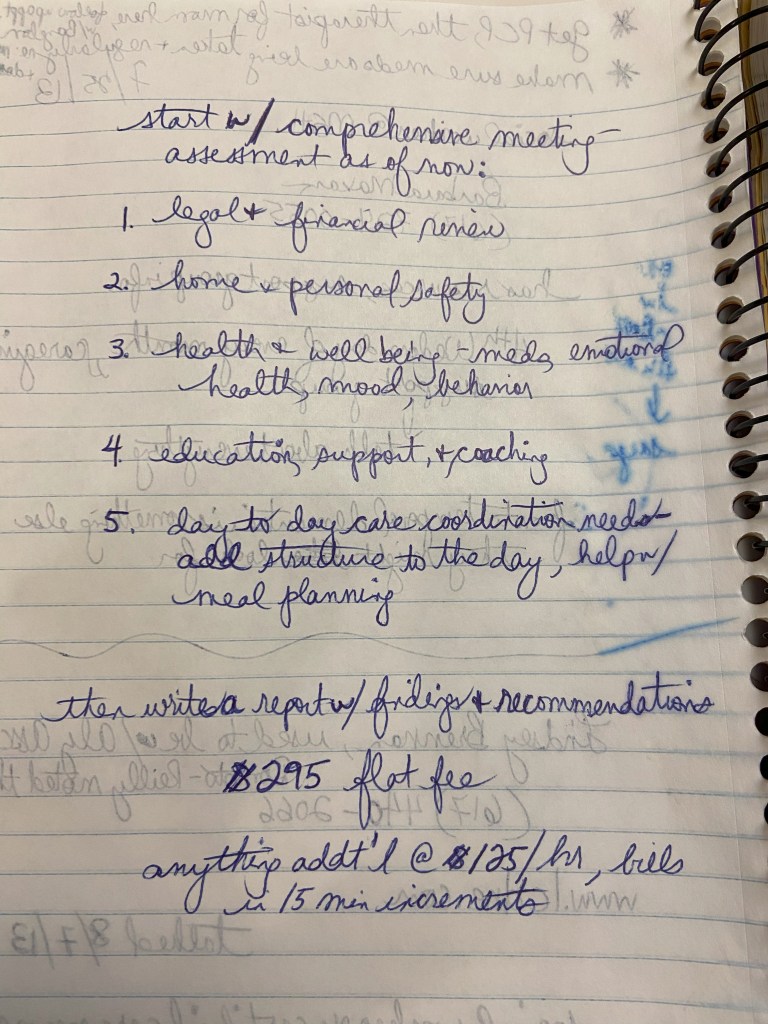 start w/ comprehensive meeting –
assessment as of now:
1. legal + financial review
2. home + personal safety
3. health + well being – meds, emotional
health, mood, behavior
4. education, support, + coaching
5. day to day care coordination needs –
add structure to the day, help w/
meal planning
then writes a report w/ findings + recommendations
$295 flat fee
anything addt'l @ $125/hr, bills
in 15 min increments